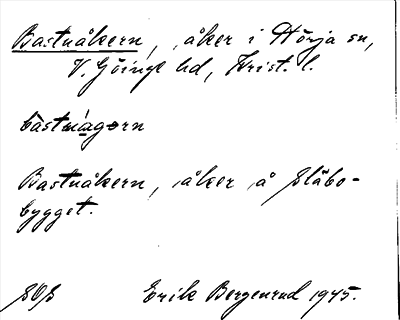 Bastnåkern, åker i Hörja sn,
V. Göinge hd, Krist. l.
bastnågorn
Bastnåkern, åker å Slåbo-
bygget.
SOS Erik Bergenrud 1945.